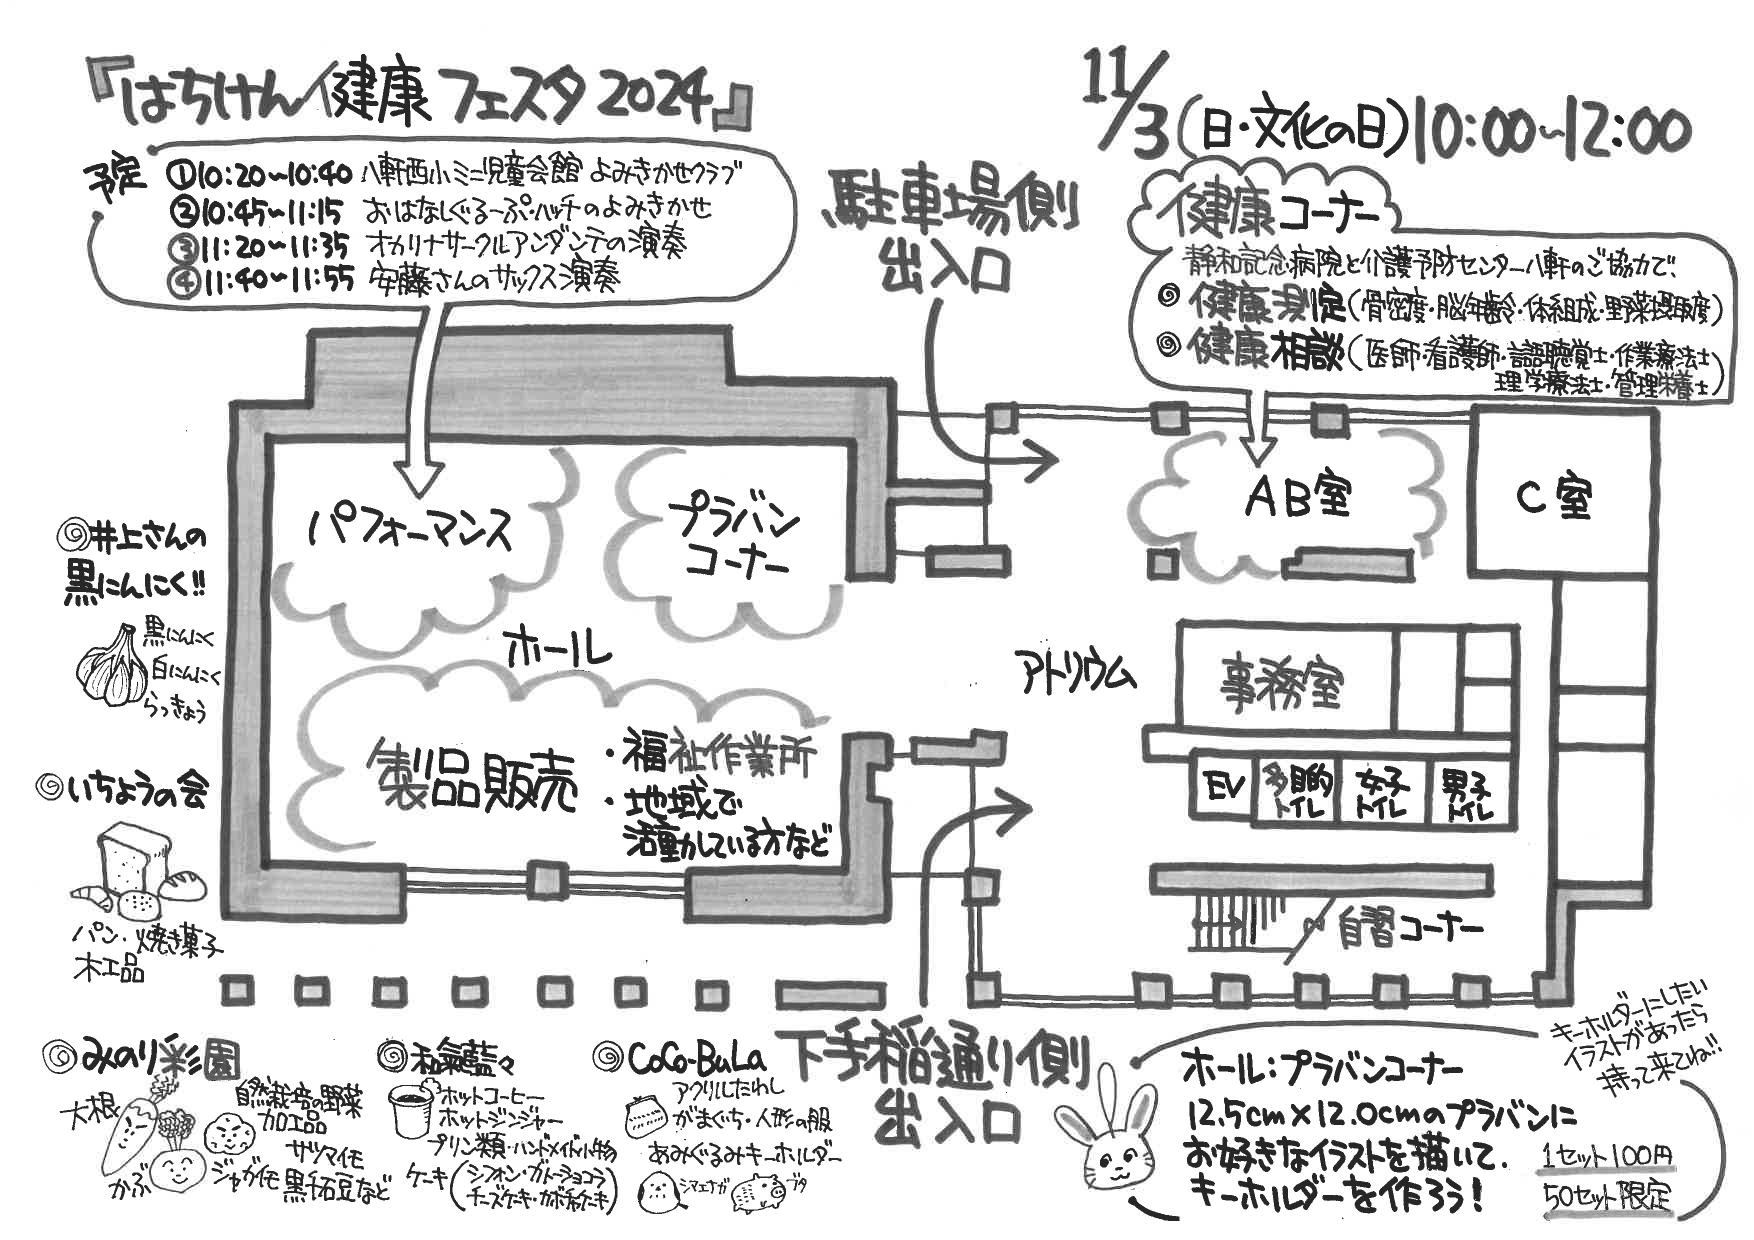 『はちけん健康フェスタ2024』
11/3(日・文化の日)10:00~12:00
予定
①10:20~10:40 八軒西小ミニ児童会館 よみきかせクラブ
②10:45~11:15 おはなしぐるーぷ・ハッチのよみきかせ
③11:20~11:35 オカリナサークルアンダンテの演奏
④11:40~11:55 安藤さんのサックス演奏
駐車場側
出入口
健康コーナー
静和記念病院と介護予防センター八軒のご協力で、
◎健康測定(骨密度・脳年齢・体組成・野菜摂取度)
◎健康相談(医師・看護師・言語聴覚士・作業療法士
理学療法士・管理栄養士)
パフォーマンス
プラバン
コーナー
AB室
C室
ホール
アトリウム
事務室
製品販売
・福祉作業所
・地域で
活動している方など
EV
多目的
トイレ
女子
トイレ
男子
トイレ
自習コーナー
◎井上さんの
黒にんにく!!
黒にんにく
白にんにく
らっきょう
◎いちょうの会
パン・焼き菓子
木工品
◎みのり彩園
大根
自然栽培の野菜
加工品
サツマイモ
かぶ
ジャガイモ
黒千石豆など
◎和氣藍々
ホットコーヒー
ホットジンジャー
プリン類・ハンドメイド小物
ケーキ(シフォン・ガトーショコラ
チーズケーキ・カボチャケーキ)
◎CoCo-BuLa
アクリルたわし
がまぐち・人形の服
あみぐるみキーホルダー
シマエナガ
ブタ
下手稲通り側
出入口
ホール:プラバンコーナー
12.5cm×12.0cmのプラバンに
お好きなイラストを描いて、
キーホルダーを作ろう!
1セット100円
50セット限定
キーホルダーにしたい
イラストがあったら
持って来てね!!